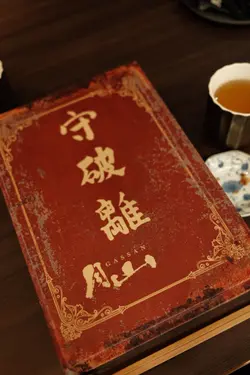 守
破
離
GASSAN
月山